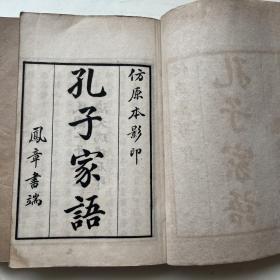 仿原本影印
孔子家語
鳳章書端